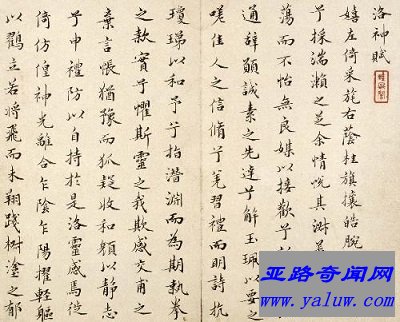 洛神賦
嬉左倚采旄右蔭桂旗攘皓腕
兮採湍瀨之芝余情悅其淑
蕩而不怡無良媒以接歡兮
通辭願誠素之先達兮解玉珮以要之
嗟佳人之信脩兮羌習禮而明詩抗
瓊珶以和予兮指潛淵而為期執拳
之款實兮懼斯靈之我欺感交甫之
棄言悵猶豫而狐疑收和顏以靜志
兮申禮防以自持於是洛靈感焉徙
倚彷徨神光離合乍陰乍陽擢輕軀
以鶴立若將飛而未翔踐椒塗之郁
亚路奇闻网
www.yaluw.com